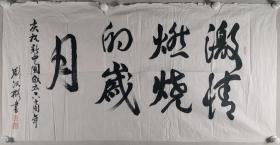 激情
燃烧
的岁
月
庆祝新中国成立六十周年
刘江彬书